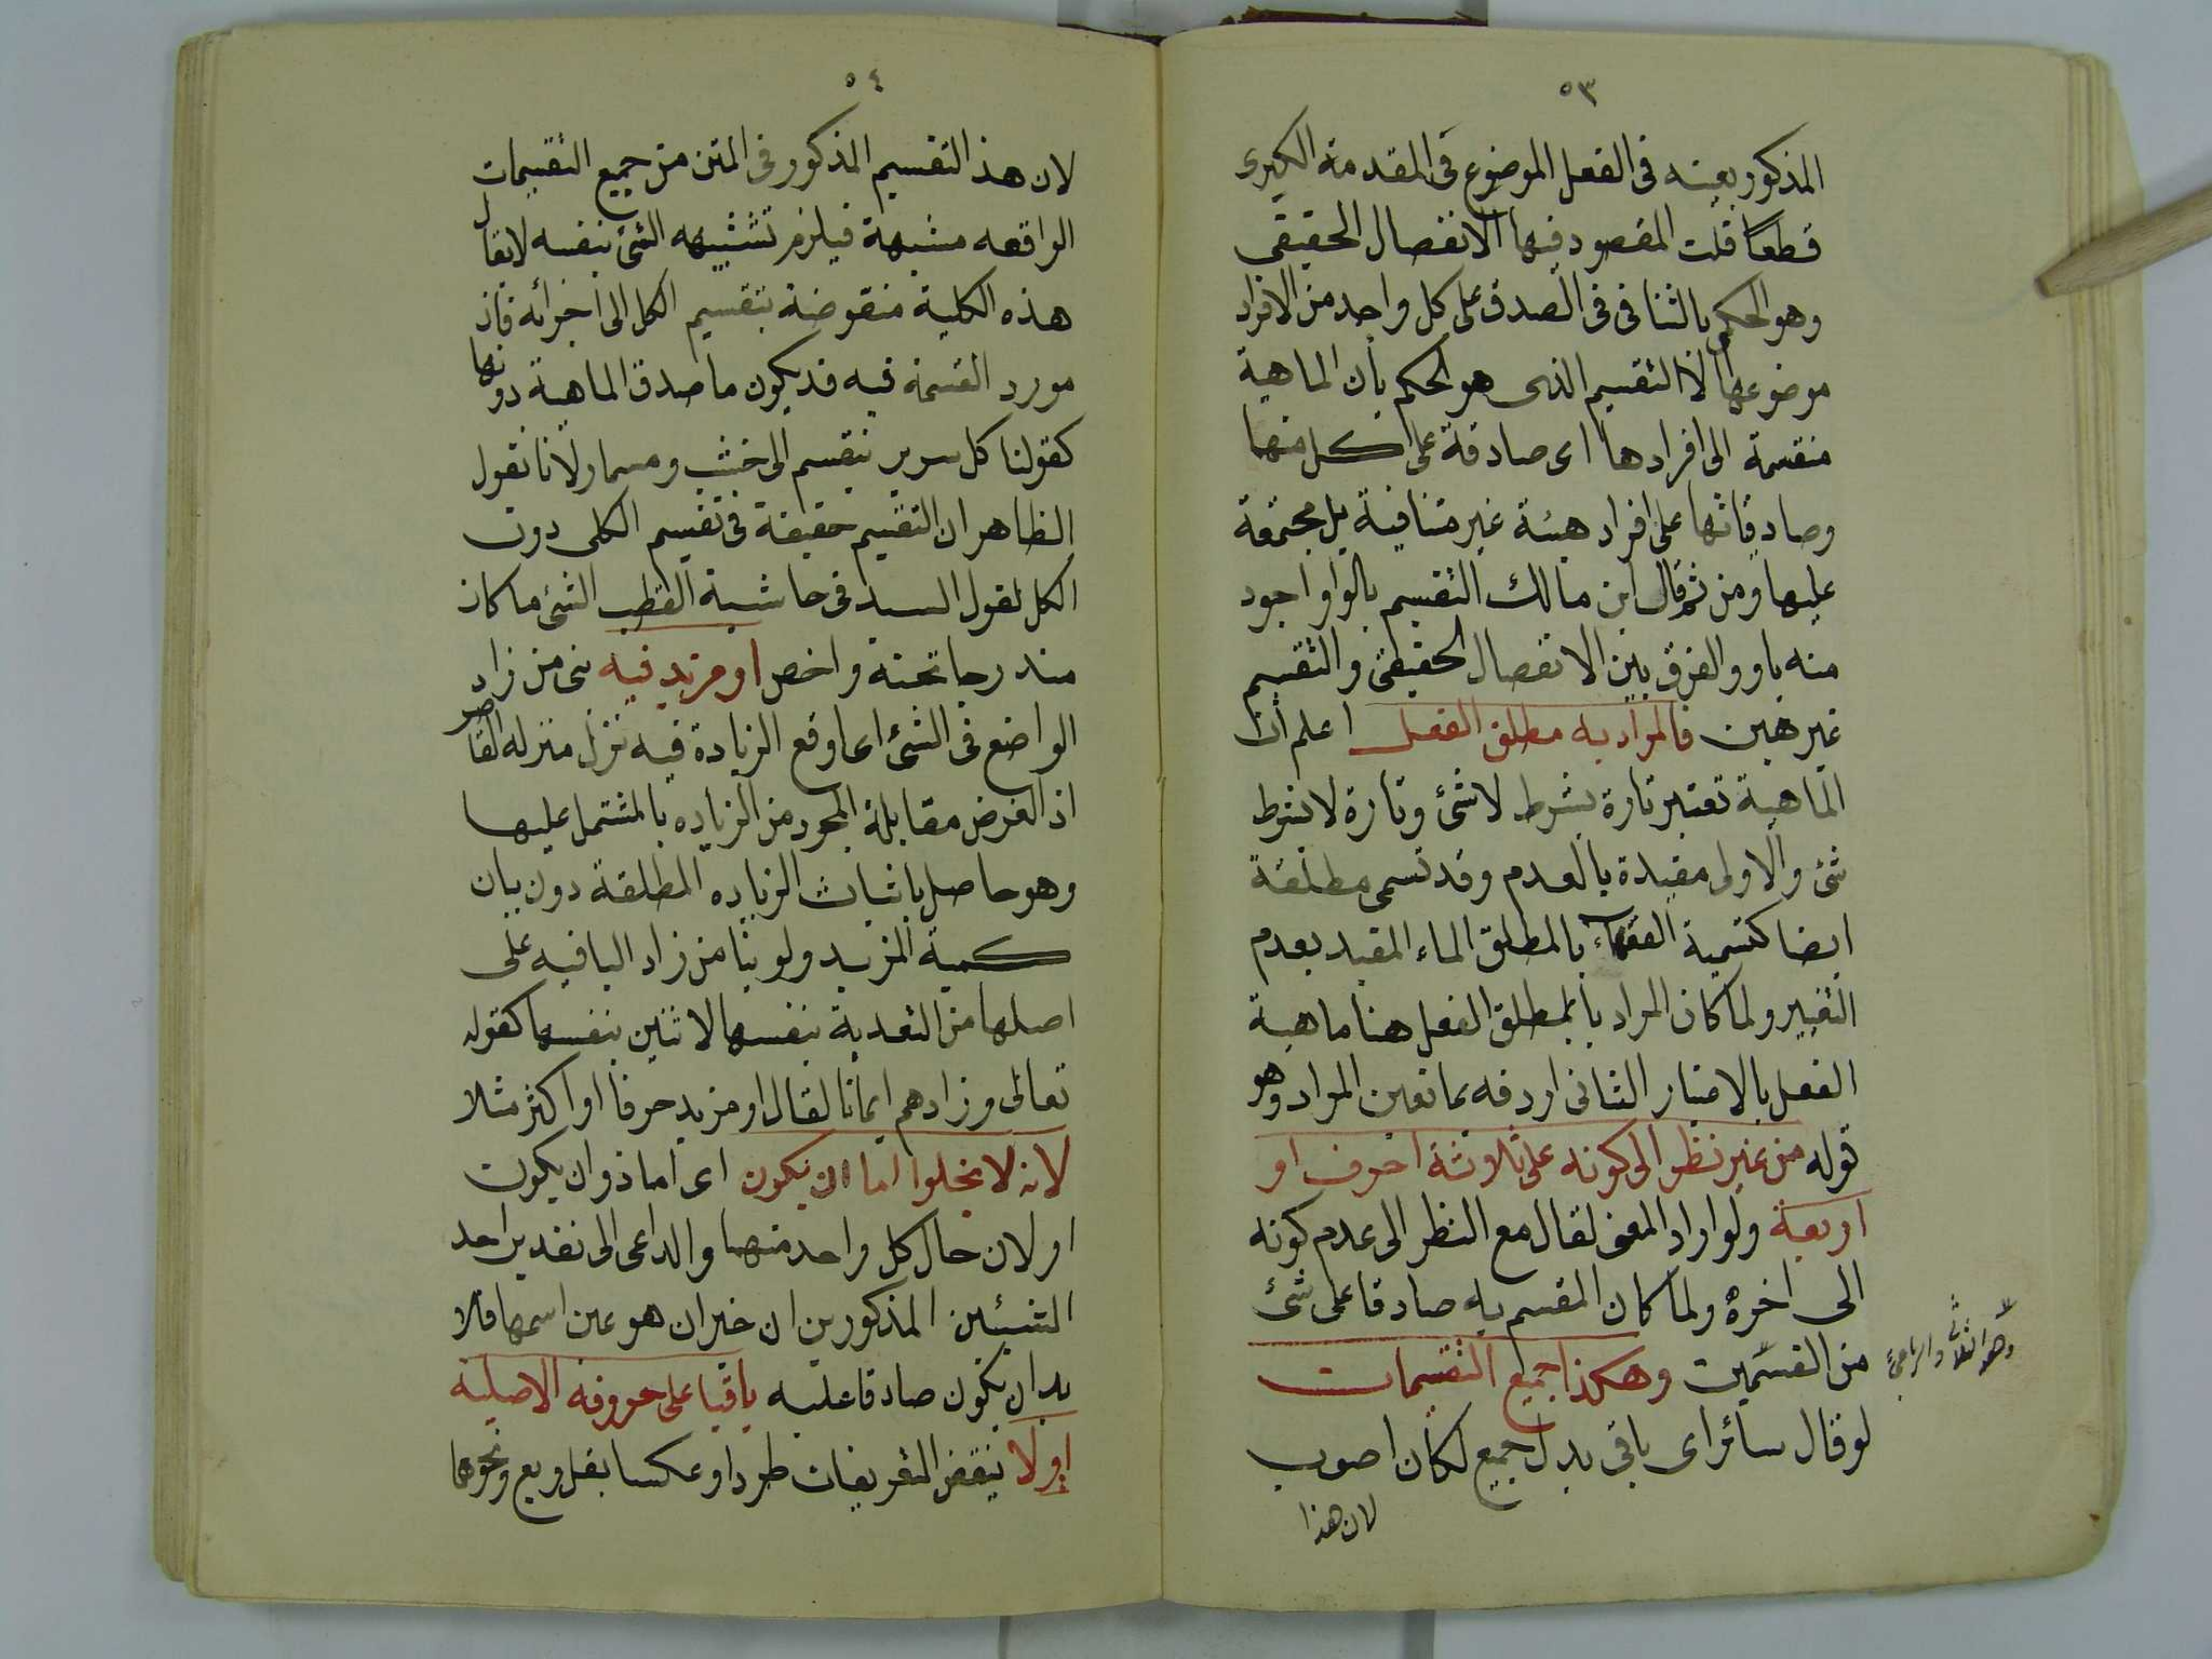 ٥٣
المذكور بعينه فى الفعل الموضوع فى المقدمة الكبرى
قطعا قلت المقصود فيها الانفصال الحقيقى
وهو الحكم بالتنافى فى الصدق على كل واحد من الافراد
موضوعها لا التقسيم الذى هو الحكم بأن الماهية
منقسمة الى افرادها اى صادقة على كل منها
وصادقاتها على افراد هيئة غير متنافية بل مجتمعة
عليها ومن ثم قال ابن مالك التقسيم بالواو اجود
منه باو والفرق بين الانفصال الحقيقى والتقسيم
غير هين فالمراد به مطلق الفعل اعلم ان
الماهية تعتبر تارة بشرط لا شئ وتارة لا بشرط
شئ والاولى مقيدة بالعدم وقد تسمى مطلقة
ايضا كتسمية الفقهاء بالمطلق الماء المقيد بعدم
التغيير ولما كان المراد بالمطلق الفعل هنا ماهية
الفعل بالاعتبار الثانى اردفه بما تعين المراد وهو
قوله من غير نظر الى كونه على ثلاوثة احرف او
اربعة ولو اراد المعنى لقال مع النظر الى عدم كونه
الى اخره ولما كان المقسم به صادقا على شئ
من القسمين وهكذا جميع التقسيمات
وهو الثلاثى والرباعى
لو قال سائر اى باقى بدل جميع لكان اصوب
لان هذا
٥٤
لان هذا التقسيم المذكور فى المتن من جميع التقسيمات
الواقعه مشبهة فيلزم تشبيهه الشئ بنفسه لا يقال
هذه الكلية منقوضة بتقسيم الكل الى اجزائه فان
مورد القسمة فيه قد يكون ما صدق الماهية دونها
كقولنا كل سرير ينقسم الى خشب ومسمار لانا نقول
الظاهر ان التقسيم حقيقة فى تقسيم الكلى دون
الكل لقول السيد فى حاشية القطب الشئ ما كان
مندرجا تحته واخص او مزيد فيه بنى من زاد
الواضع فى الشئ اى اوقع الزيادة فيه نزل منزله القاصر
اذ الغرض مقابلة المجرد من الزياده بالمشتمل عليها
وهو حاصل باثبات الزياده المطلقة دون بيان
كمية المزيد ولو بنا من زاد الباقيه على
اصلها من التعدية بنفسها لاثنين بنفسها كقوله
تعالى وزادهم ايمانا لقال او مزيد حرفا او اكثر مثلا
لانه لا يخلوا اما ان يكون اى اما ذو ان يكون
او لان حال كل واحد منهما والداعى الى تقدير احد
الشيئين المذكورين ان خبر ان هو عين اسمها فلا
بد ان يكون صادقا عليه باقيا على حروفه الاصلية
اولا ينقض التعريفات طردا وعكسا بقل وبع ونحوهما